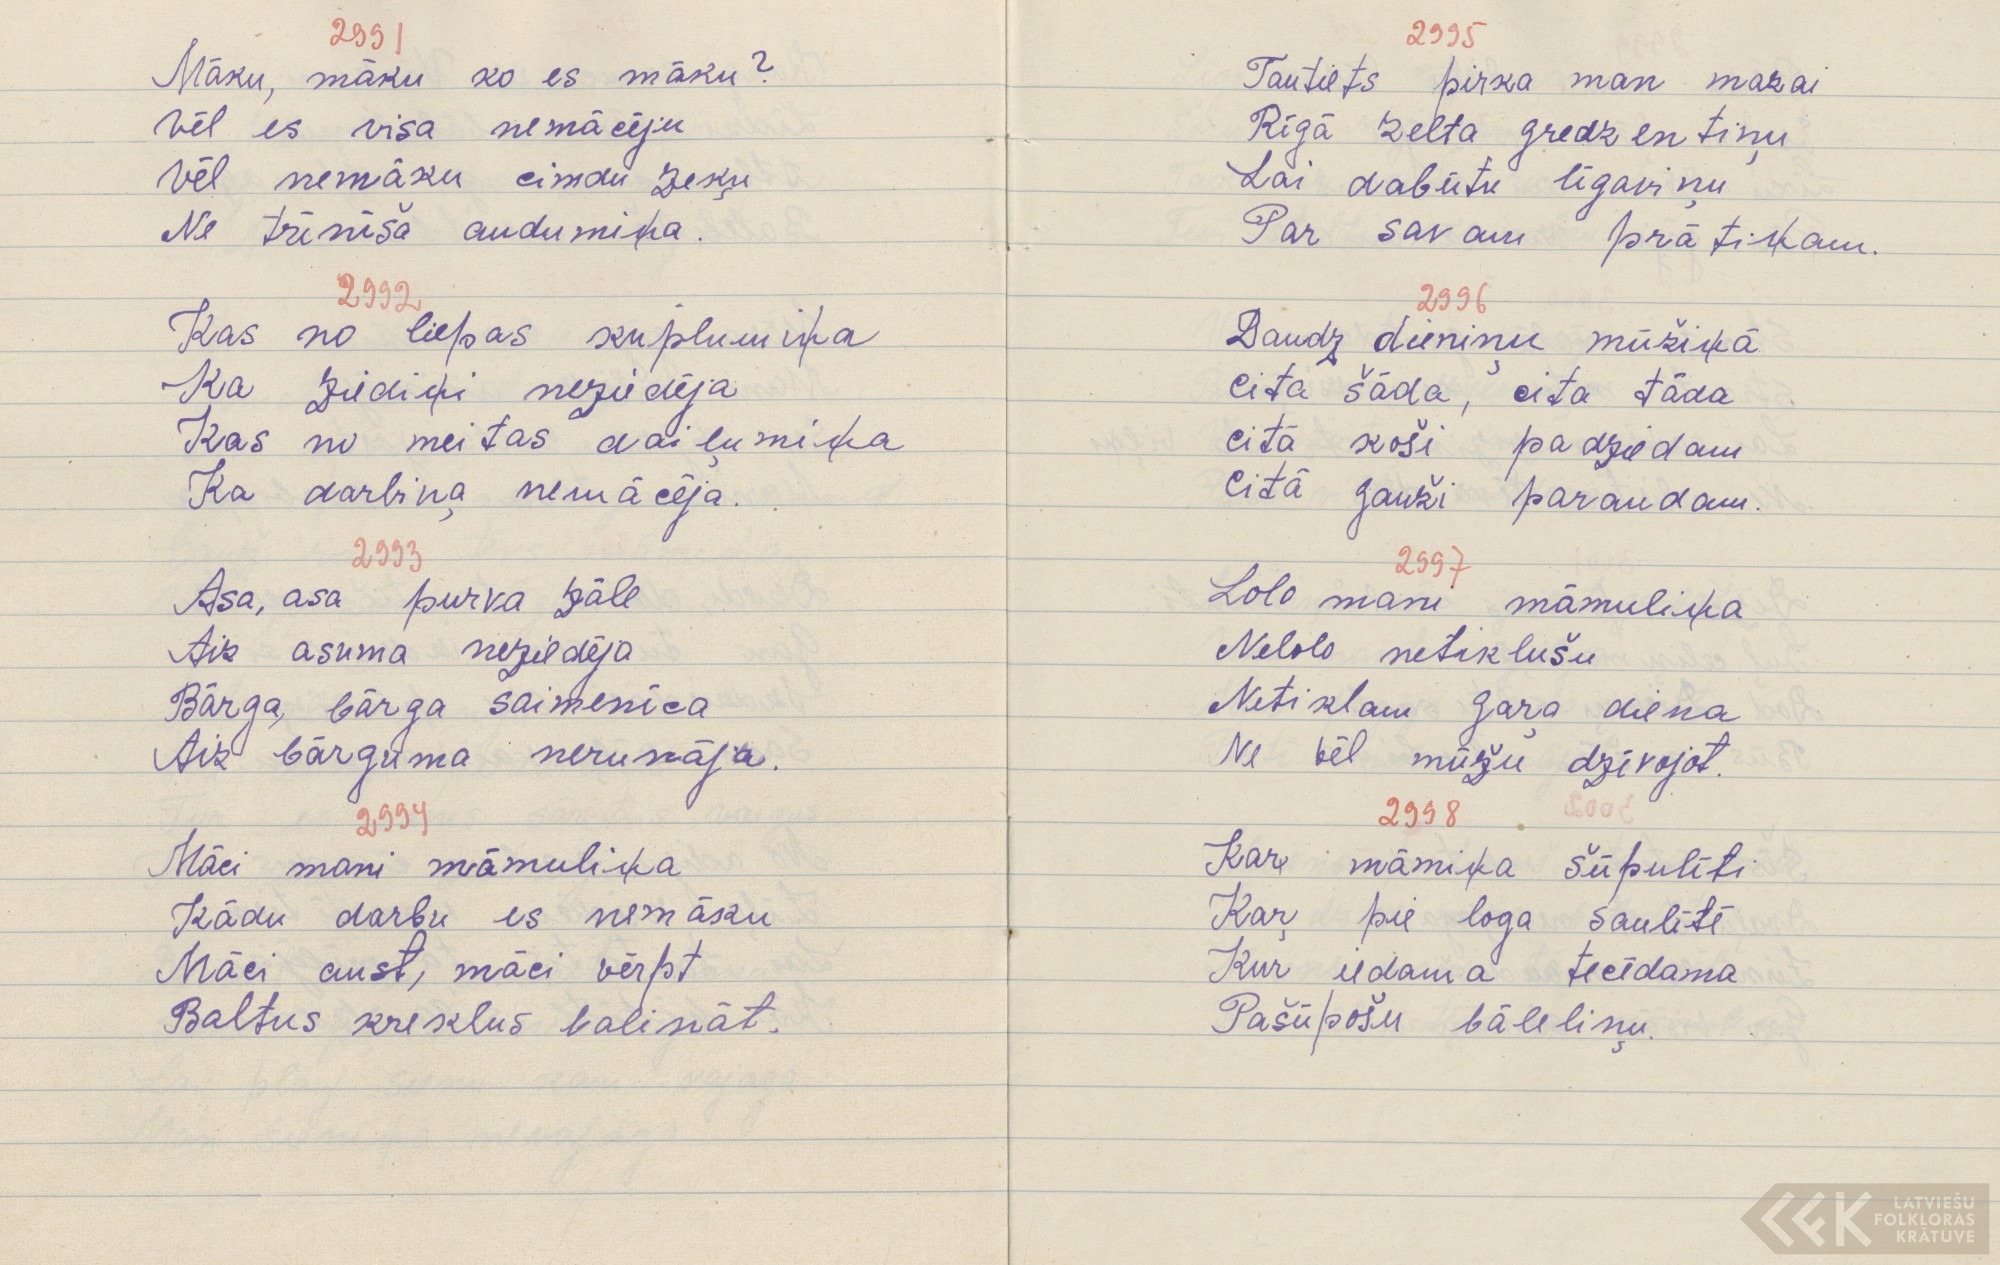 2991
Māku, māku ko es māku?
Vēl es visa nemācēju
Vēl nemāku cimdu zeķu
Ne trīnīša audumiņa.
2992
Kas no liepas kuplumiņa
Ka ziediņi neziedēja
Kas no meitas daiļumiņa
Ka darbiņa nemācēja.
2993
Asa, asa purva zāle
Aiz asuma neziedēja
Bārga, bārga saimenīca
Aiz bārguma nerunāja.
2994
Māci mani māmuliņa
Kādu darbu es nemāku
Māci aust, māci vērpt
Baltus kreklus balināt.
2995
Tautiets pirka man mazai
Rīgā zelta gredzentiņu
Lai dabūtu līgaviņu
Par savam prātiņam.
2996
Daudz dieniņu mūžiņā
Cita šāda, cita tāda
Citā koši padziedam
Citā gauži paraudam.
2997
Lolo mani māmuliņa
Nelolo netiklušu
Netiklam gaŗa diena
Ne vēl mūžu dzīvojot.
2998
Kar māmiņa šūpulīti
Kaŗ pie loga saulītē
Kur iedama tecēdama
Pašūpošu bāleliņu.
LATVIEŠU
FOLKLORAS
KRĀTUVE